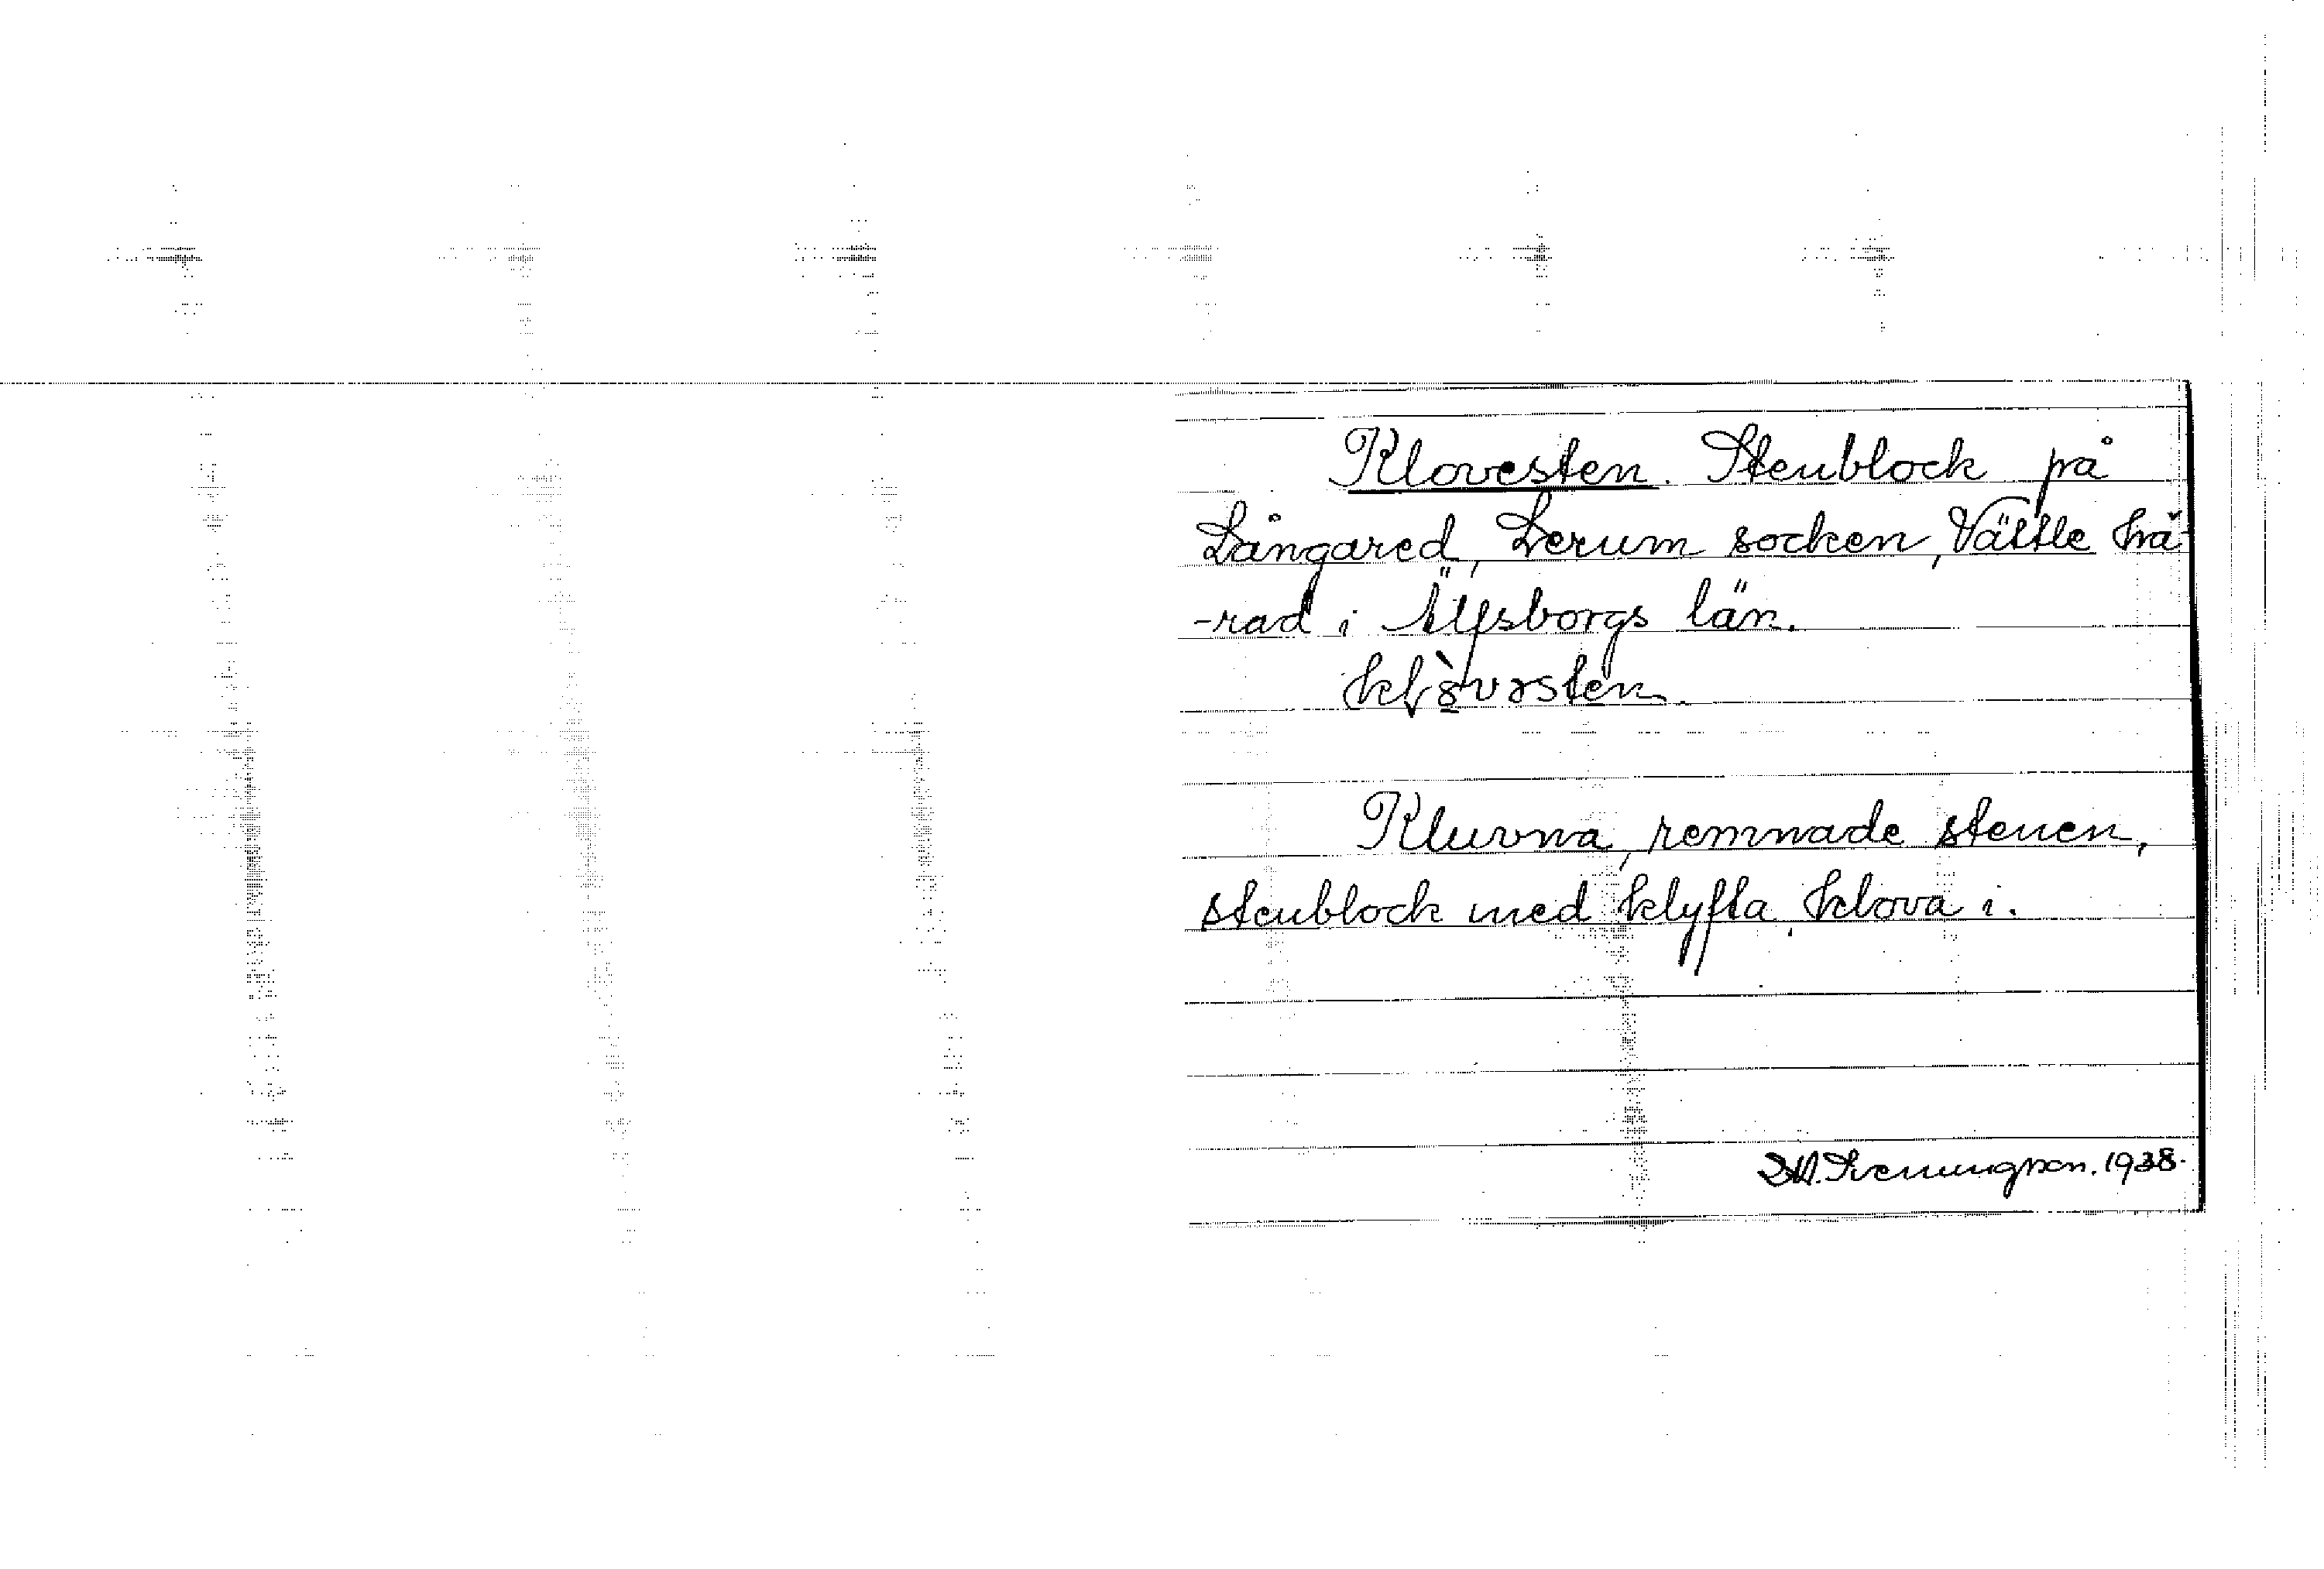 Klovesten. Stenblock på
Långared, Lerum socken, Vättle hä-
-rad i Älfsborgs län.
Kluvna, remnade stenen,
stenblock med klyfta, klova i.
1938.